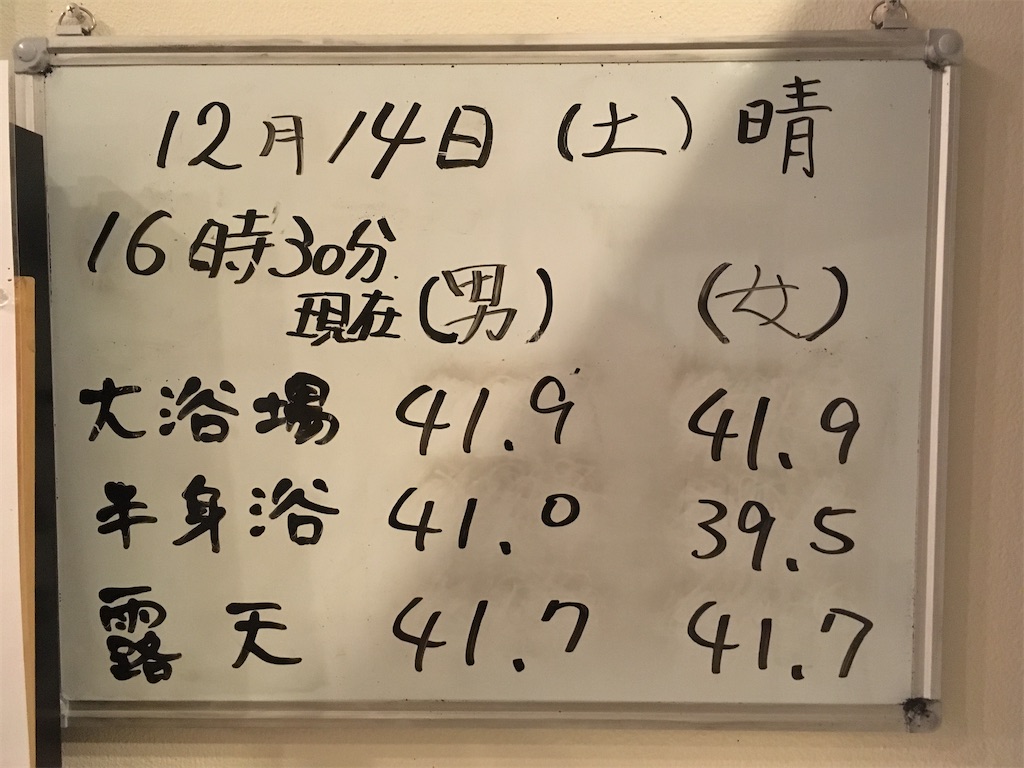 12月14日（土）晴
16時30分
現在（男）（女）
大浴場 41.9 41.9
半身浴 41.0 39.5
露天 41.7 41.7